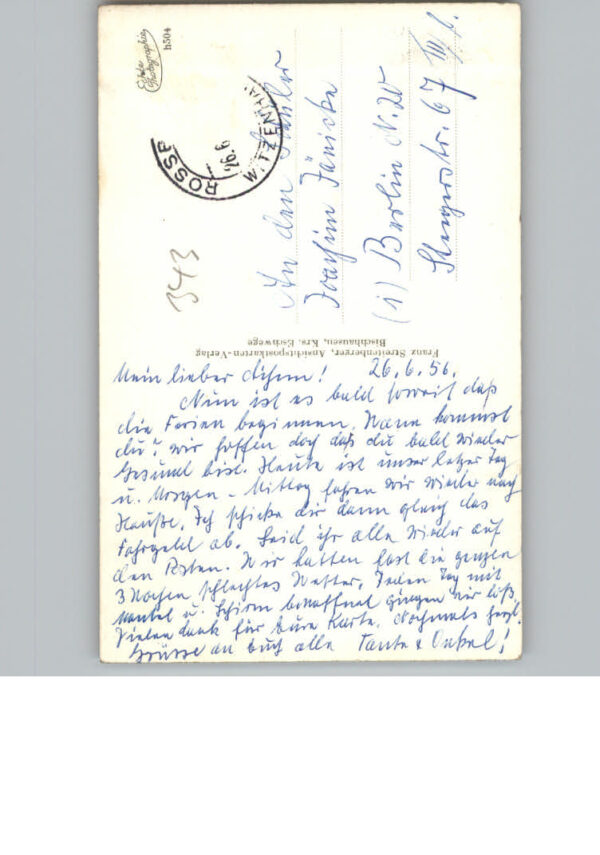 Mein lieber Achim! 26.6.56.
Nun ist es bald soweit daß
die Ferien beginnen. Wann kommst
du? wir hoffen doch daß du bald wieder
Gesund bist. Heute ist unser letzer Tag
u. Morgen - Mittag fahren wir wieder nach
Hauße. Ich schicke dir dann gleich das
Fahrgeld ab. Seid ihr alle wieder auf
den Posten. Wir hatten fast die ganzen
3 Wochen schlechtes Wetter. Jeden Tag mit
Mantel u. Schirm bewaffnet gingen wir loß.
Vielen dank für Eure Karte. Nochmals herzl.
Grüsse an Euch alle Tante & Onkel!
Franz Streitenberger, Ansichtspostkarten-Verlag
Bischhausen, Krs. Eschwege
An den Schüler
Joachim Jänicke
(1) Berlin N.20
67 III l.
343
ROSSB
26.6
WITZENHA
Echte
Photographie
h504